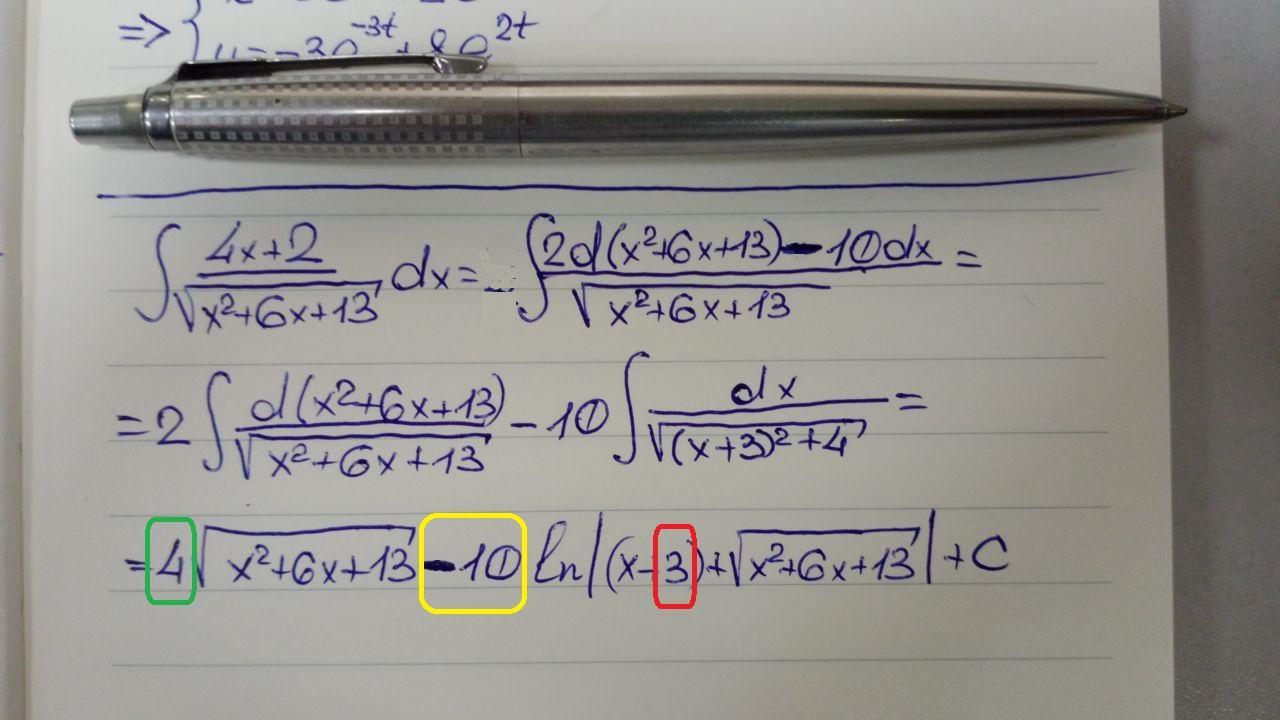 => { y = -3e^{-3t} + 8e^{2t}
∫ (4x+2)/√(x²+6x+13) dx = ∫ (2d(x²+6x+13) - 10dx)/√(x²+6x+13) =
= 2 ∫ d(x²+6x+13)/√(x²+6x+13) - 10 ∫ dx/√((x+3)²+4) =
= 4√(x²+6x+13) - 10 ln|(x-3)+√(x²+6x+13)| + C